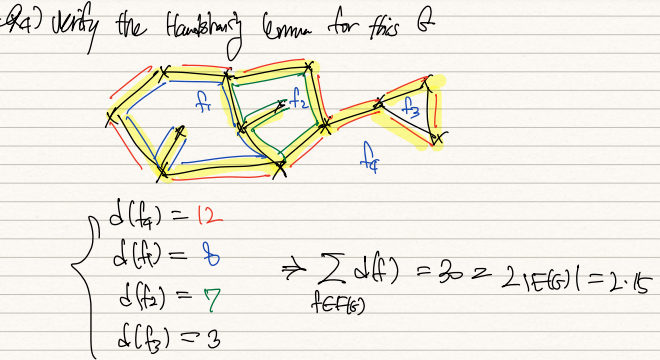 Q4) Verify the Handshaking lemma for this G
f₁ f₂ f₃
f₄
d(f₄) = 12
d(f₁) = 8
d(f₂) = 7
d(f₃) = 3
⇒ ∑ d(f) = 30 = 2|E(G)| = 2·15
f∈F(G)